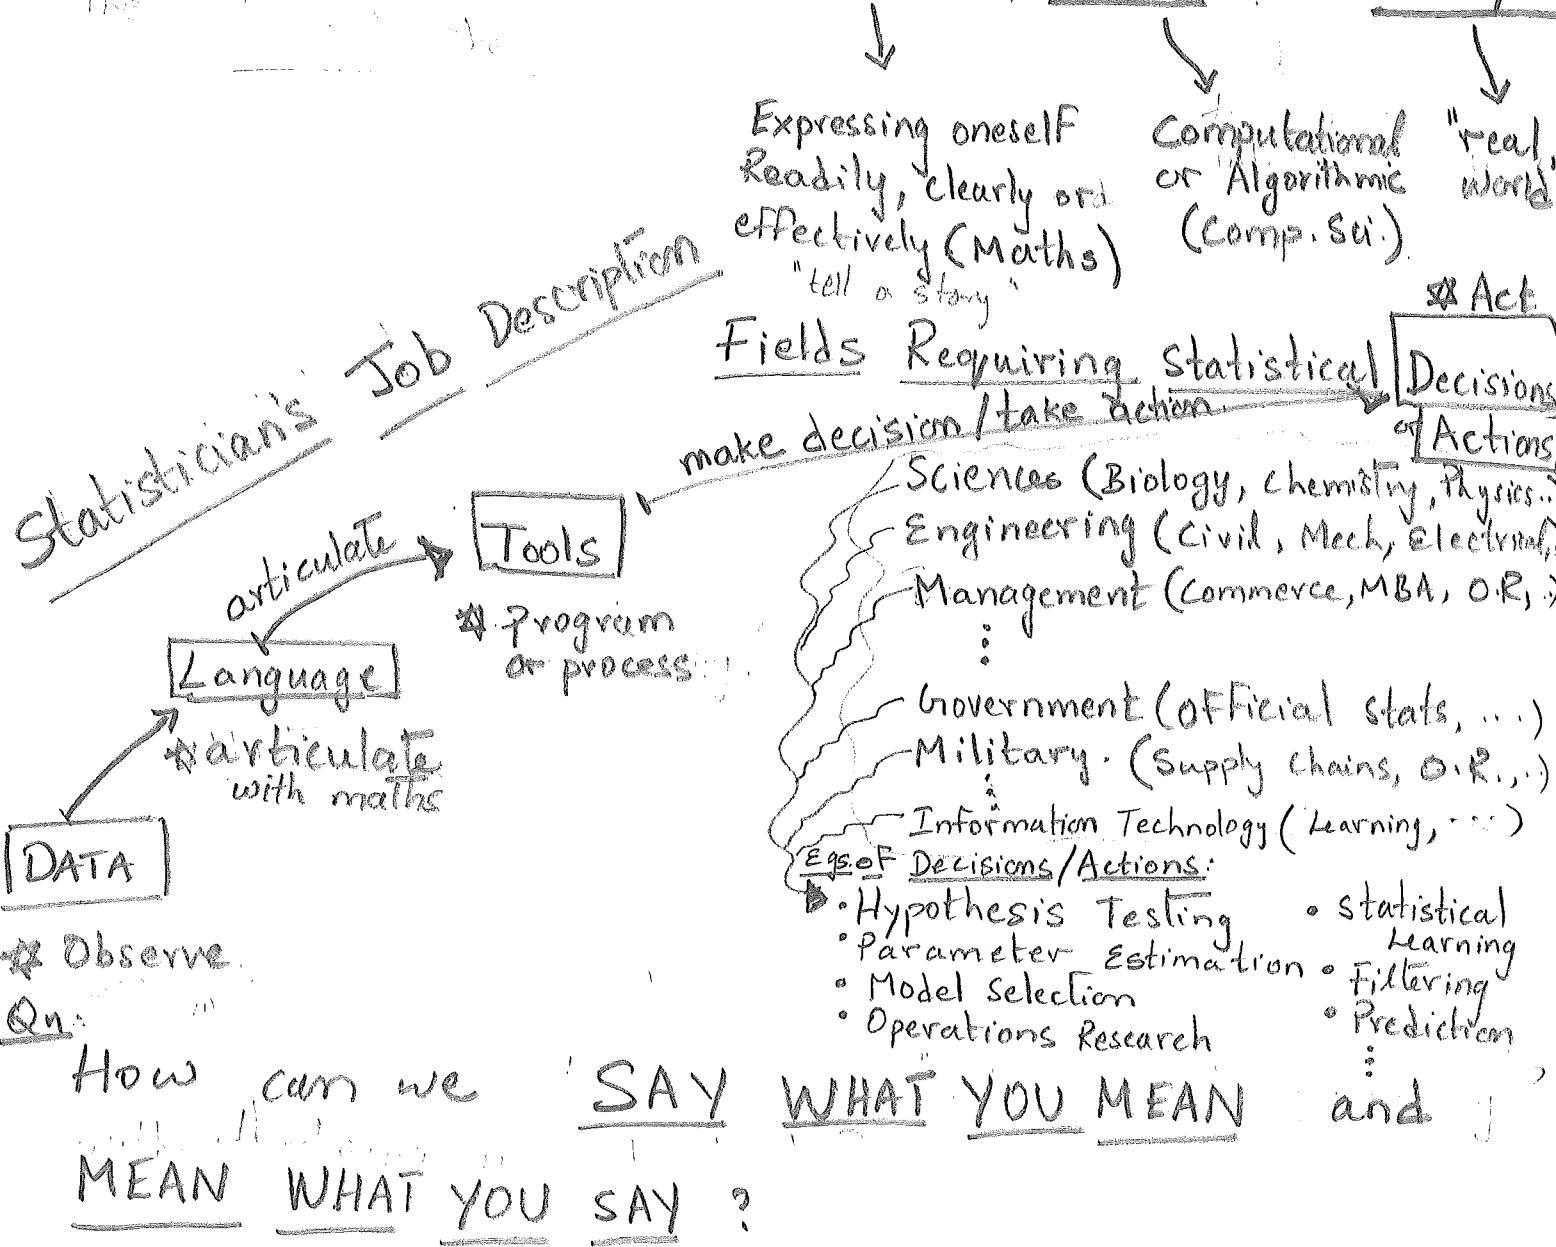 Expressing oneself
Readily, clearly or
effectively (Maths)
"tell a story"
Computational
or Algorithmic
(Comp. Sci.)
"real
world"
Statistician's Job Description
Fields Requiring Statistical Decisions
or Actions
* Act
make decision/take action
Tools
* Program
or process
articulate
Language
* articulate
with maths
DATA
* Observe
Sciences (Biology, Chemistry, Physics..)
Engineering (Civil, Mech, Electrical,
Management (Commerce, MBA, O.R, .)
Government (Official Stats, ...)
Military. (Supply Chains, O.R., ..)
Information Technology (Learning, ...)
Egs. of Decisions/Actions:
• Hypothesis Testing
• Parameter Estimation
• Model Selection
• Operations Research
• Statistical
Learning
• Filtering
• Prediction
Qn:
How can we SAY WHAT YOU MEAN and
MEAN WHAT YOU SAY ?